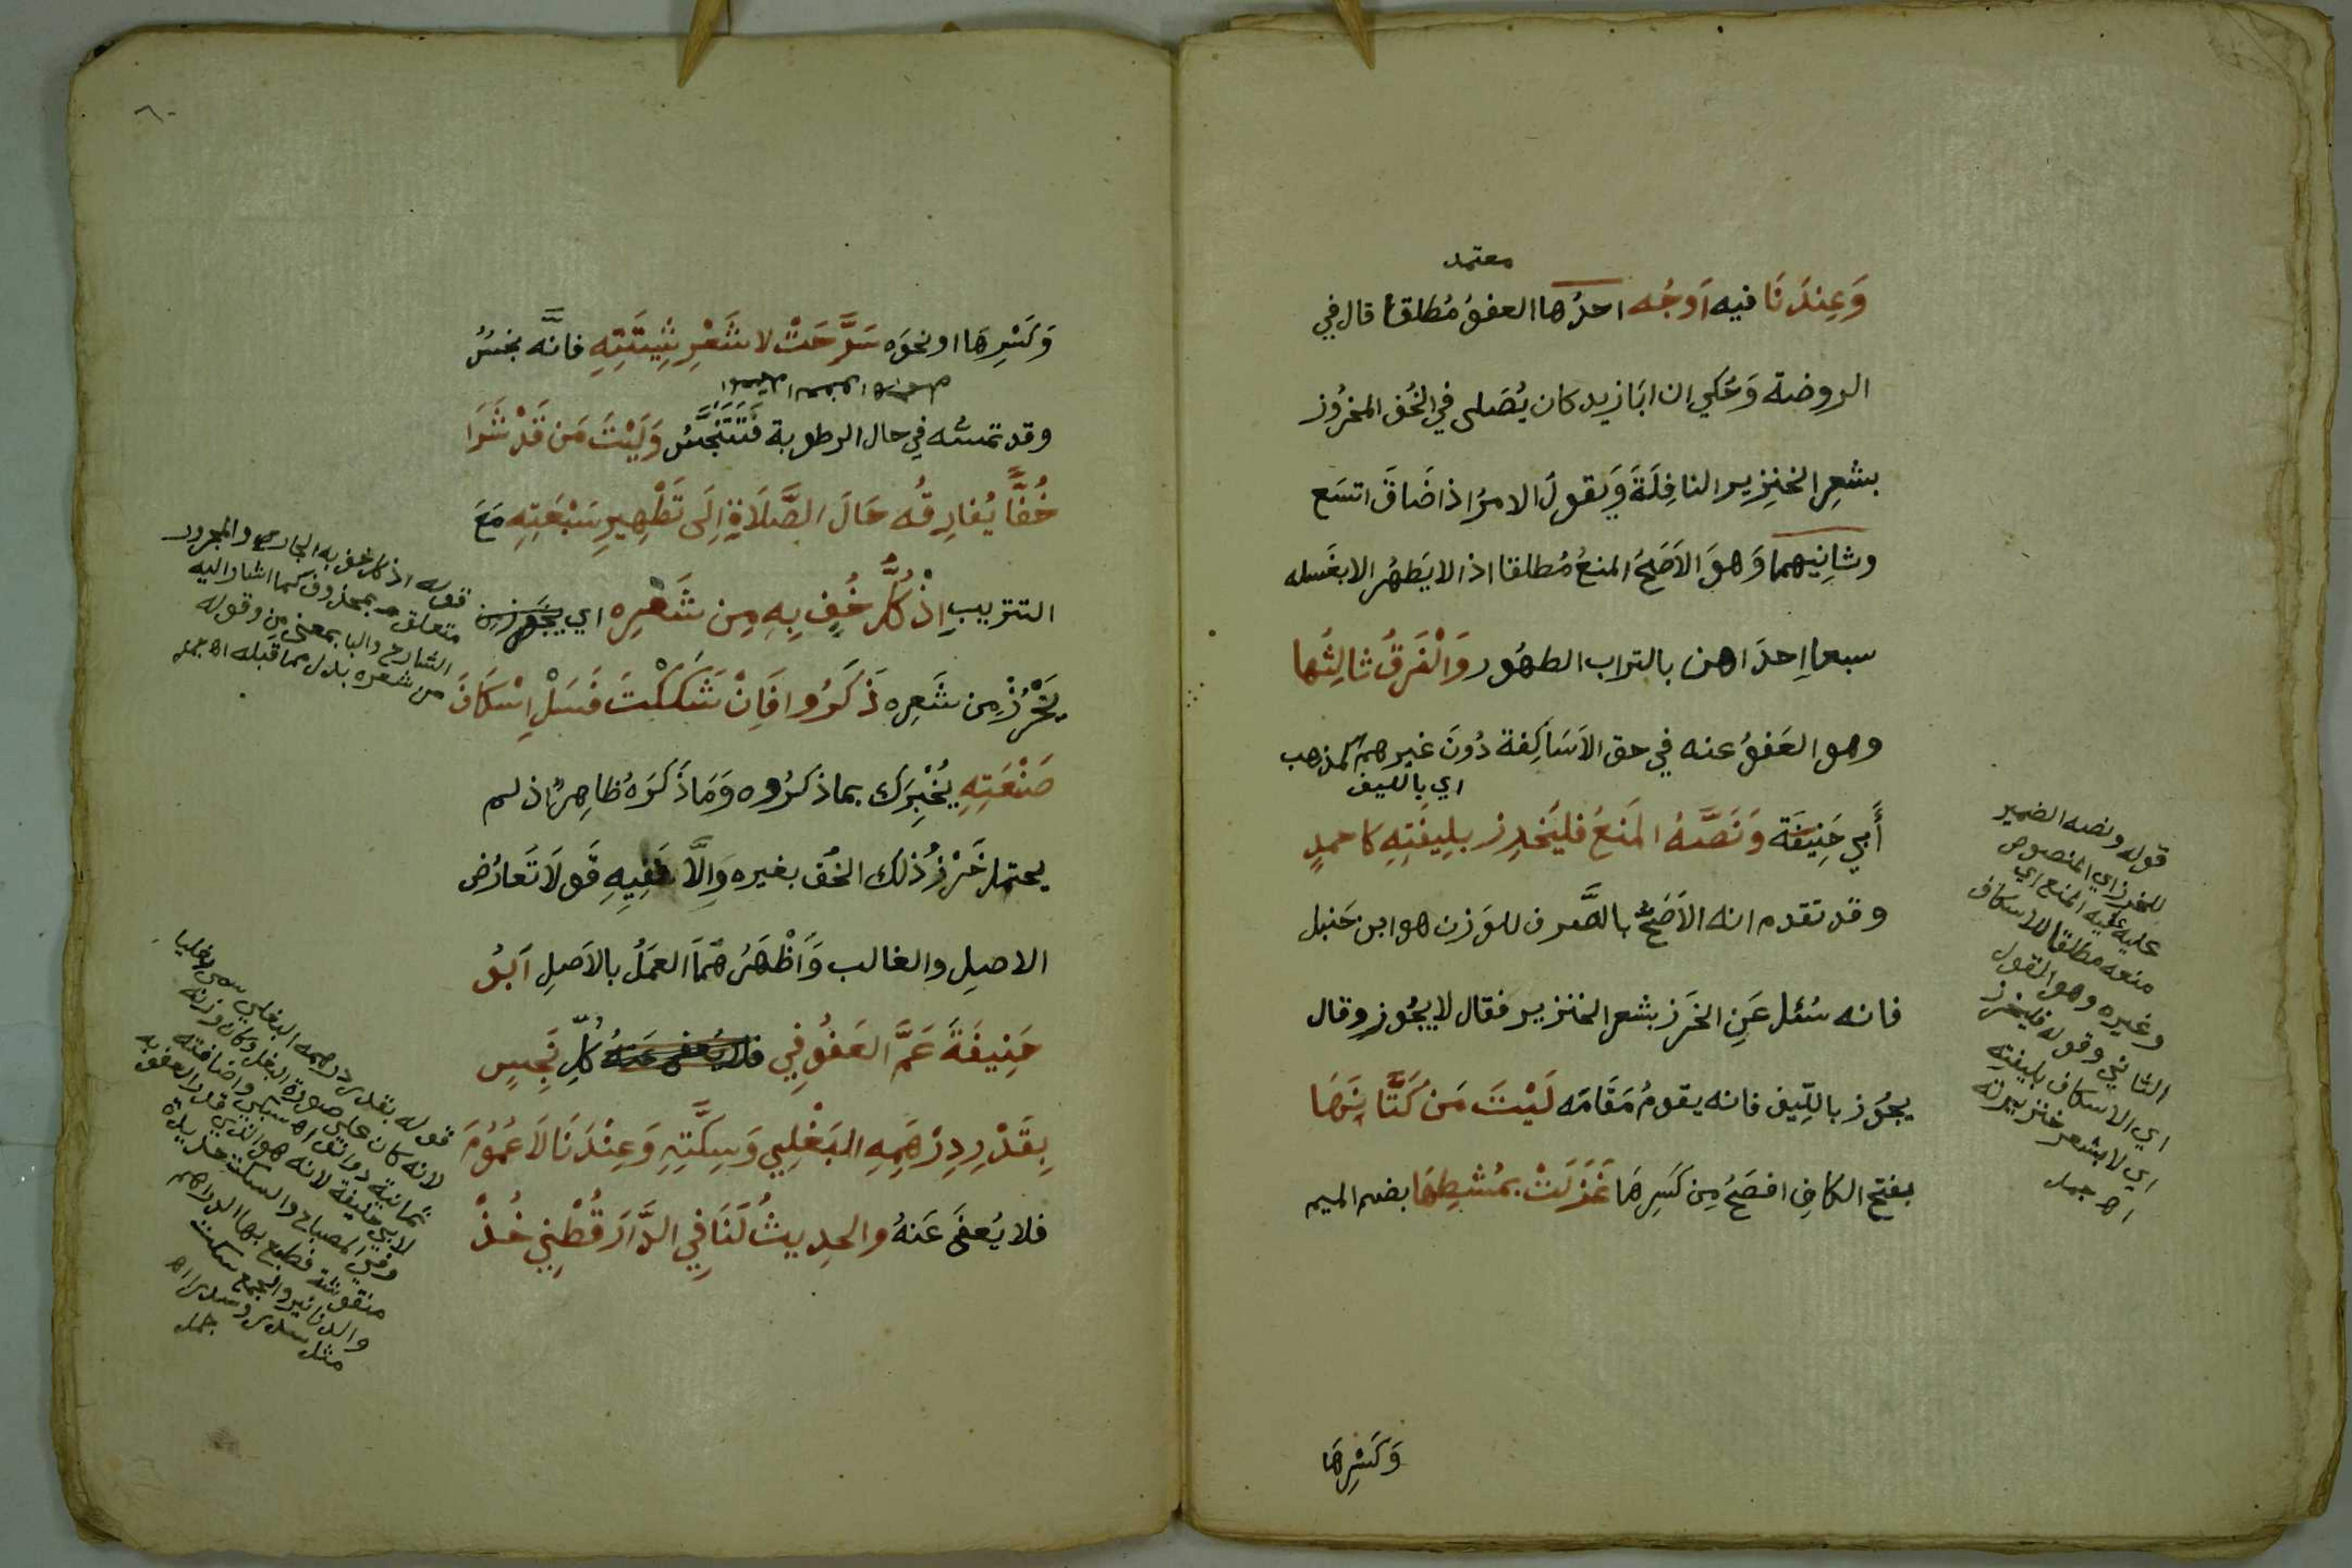 معتمد
وَعِندَنَا فيه اَوجُه احدُها العفوُ مُطلقاً قال في
الروضة وَحُكي ان ابَا زيد كان يُصَلى في الخُف المخرُوز
بشعرِ الخنزير النافِلَةَ وَيَقولُ الامرُ اذا ضَاقَ اتسَع
وثانِيهما وَهوَ الاَصَحُ المنعُ مُطلقا اذ لا يَطهُر الا بغَسله
سبعا اِحدَاهن بالتراب الطهُور وَالْفَرقُ ثالِثُها
وهو العَفوُ عنه في حق الاَسَاكِفة دُونَ غيرهم كمذهب
اي بالليف
أَبي حَنِيفَة وَنَصَّهُ المَنعُ فليَخرِز بلِيفَتِهِ كاحمدٍ
وقد تقدم انه الاَصَحُّ بالصَّرف للوَزن هو ابن حَنبل
فانه سُئل عَنِ الخَرز بشعر الخنزير فقال لا يجُوز وقال
يجُوز باللِّيف فانه يقومُ مَقَامَه لَيْتَ مَن كَتَّانَهَا
بفتح الكافِ افصَحُ مِن كَسِرهَا غَزَلَتْ بمُشطِهَا بضم الميم
وَكَسْرِهَا
قوله ونصه الضمير
للخرز اي المنصوص
عليه عليه المنع اي
منعه مطلقا للاسكاف
وغيره وهو القول
الثاني وقوله فليخرز
اي الاسكاف بليفته
اي لا بشعر خنزير له
اه جمل
٦٠
وَكَسْرِهَا اونحوَه سَرَّحَتْ لا شَعْرِ شِيتَتِهِ فانَّه نجسُ
وقد تمسُّه في حال الرطوبة فَتَتَنَجَّسُ وَلَيْتَ مَن قَدْ شَرَا
خُفًّا يُفَارِقُه حَالَ الصَّلَاةِ اِلَى تَطْهِيرِ سَبْعَتِهِ مَعَ
التتريبِ اِذْ كُلُّ خُفٍ بِهِ مِن شَعْرِه اي
يَخْرُزْ مِن شَعِره ذَكَرُوا فَاِنْ شَكَكْتَ فَسَلْ اِسْكَافَ
صَنْعَتِهِ يُخْبِرَك بما ذكرُوه وَمَا ذَكرَهُ ظاهِرٌ اذ لم
يحتمل خَرْزُ ذلك الخُف بغيره وَاِلَّا فَفِيهِ قَولَا تَعارُض
الاصِلِ والغالب وَأَظْهَرُهُمَا العَمَلُ بالاَصِلِ اَبُو
حَنِيفَةَ عَمَّ العَفُو فِي فلا يُعفى عَنهُ كُلِّ نَجِسٍ
بِقَدْرِ دِرْهَمِهِ البَغْلِيي وَسِكَّتِهِ وَعِنْدَنَا لَا عُمُومَ
فلا يُعفَى عَنهُ والحدِيثُ لَنَا فِي الدَّارَ قُطْنِي خُذْ
قوله اذ كل خف به الجار والمجرور
متعلق بمحذوف كما اشار اليه
الشارح والبا بمعنى من وقوله
من شعره بدل مما قبله اه جمل
قوله بقدر درهمه البغلي سمى بغليا
لانه كان على صورة البغل وكان وزنه
ثمانية دوانق اه سبكي واضافته
لابي حنيفة لانه هو الذي قدر العفو به
وفي المصباح والسكة حديدة
منقوشة تطبع بها الدراهم
والدنانير والجمع سكت
مثل سدرة وسدر اه
جمل